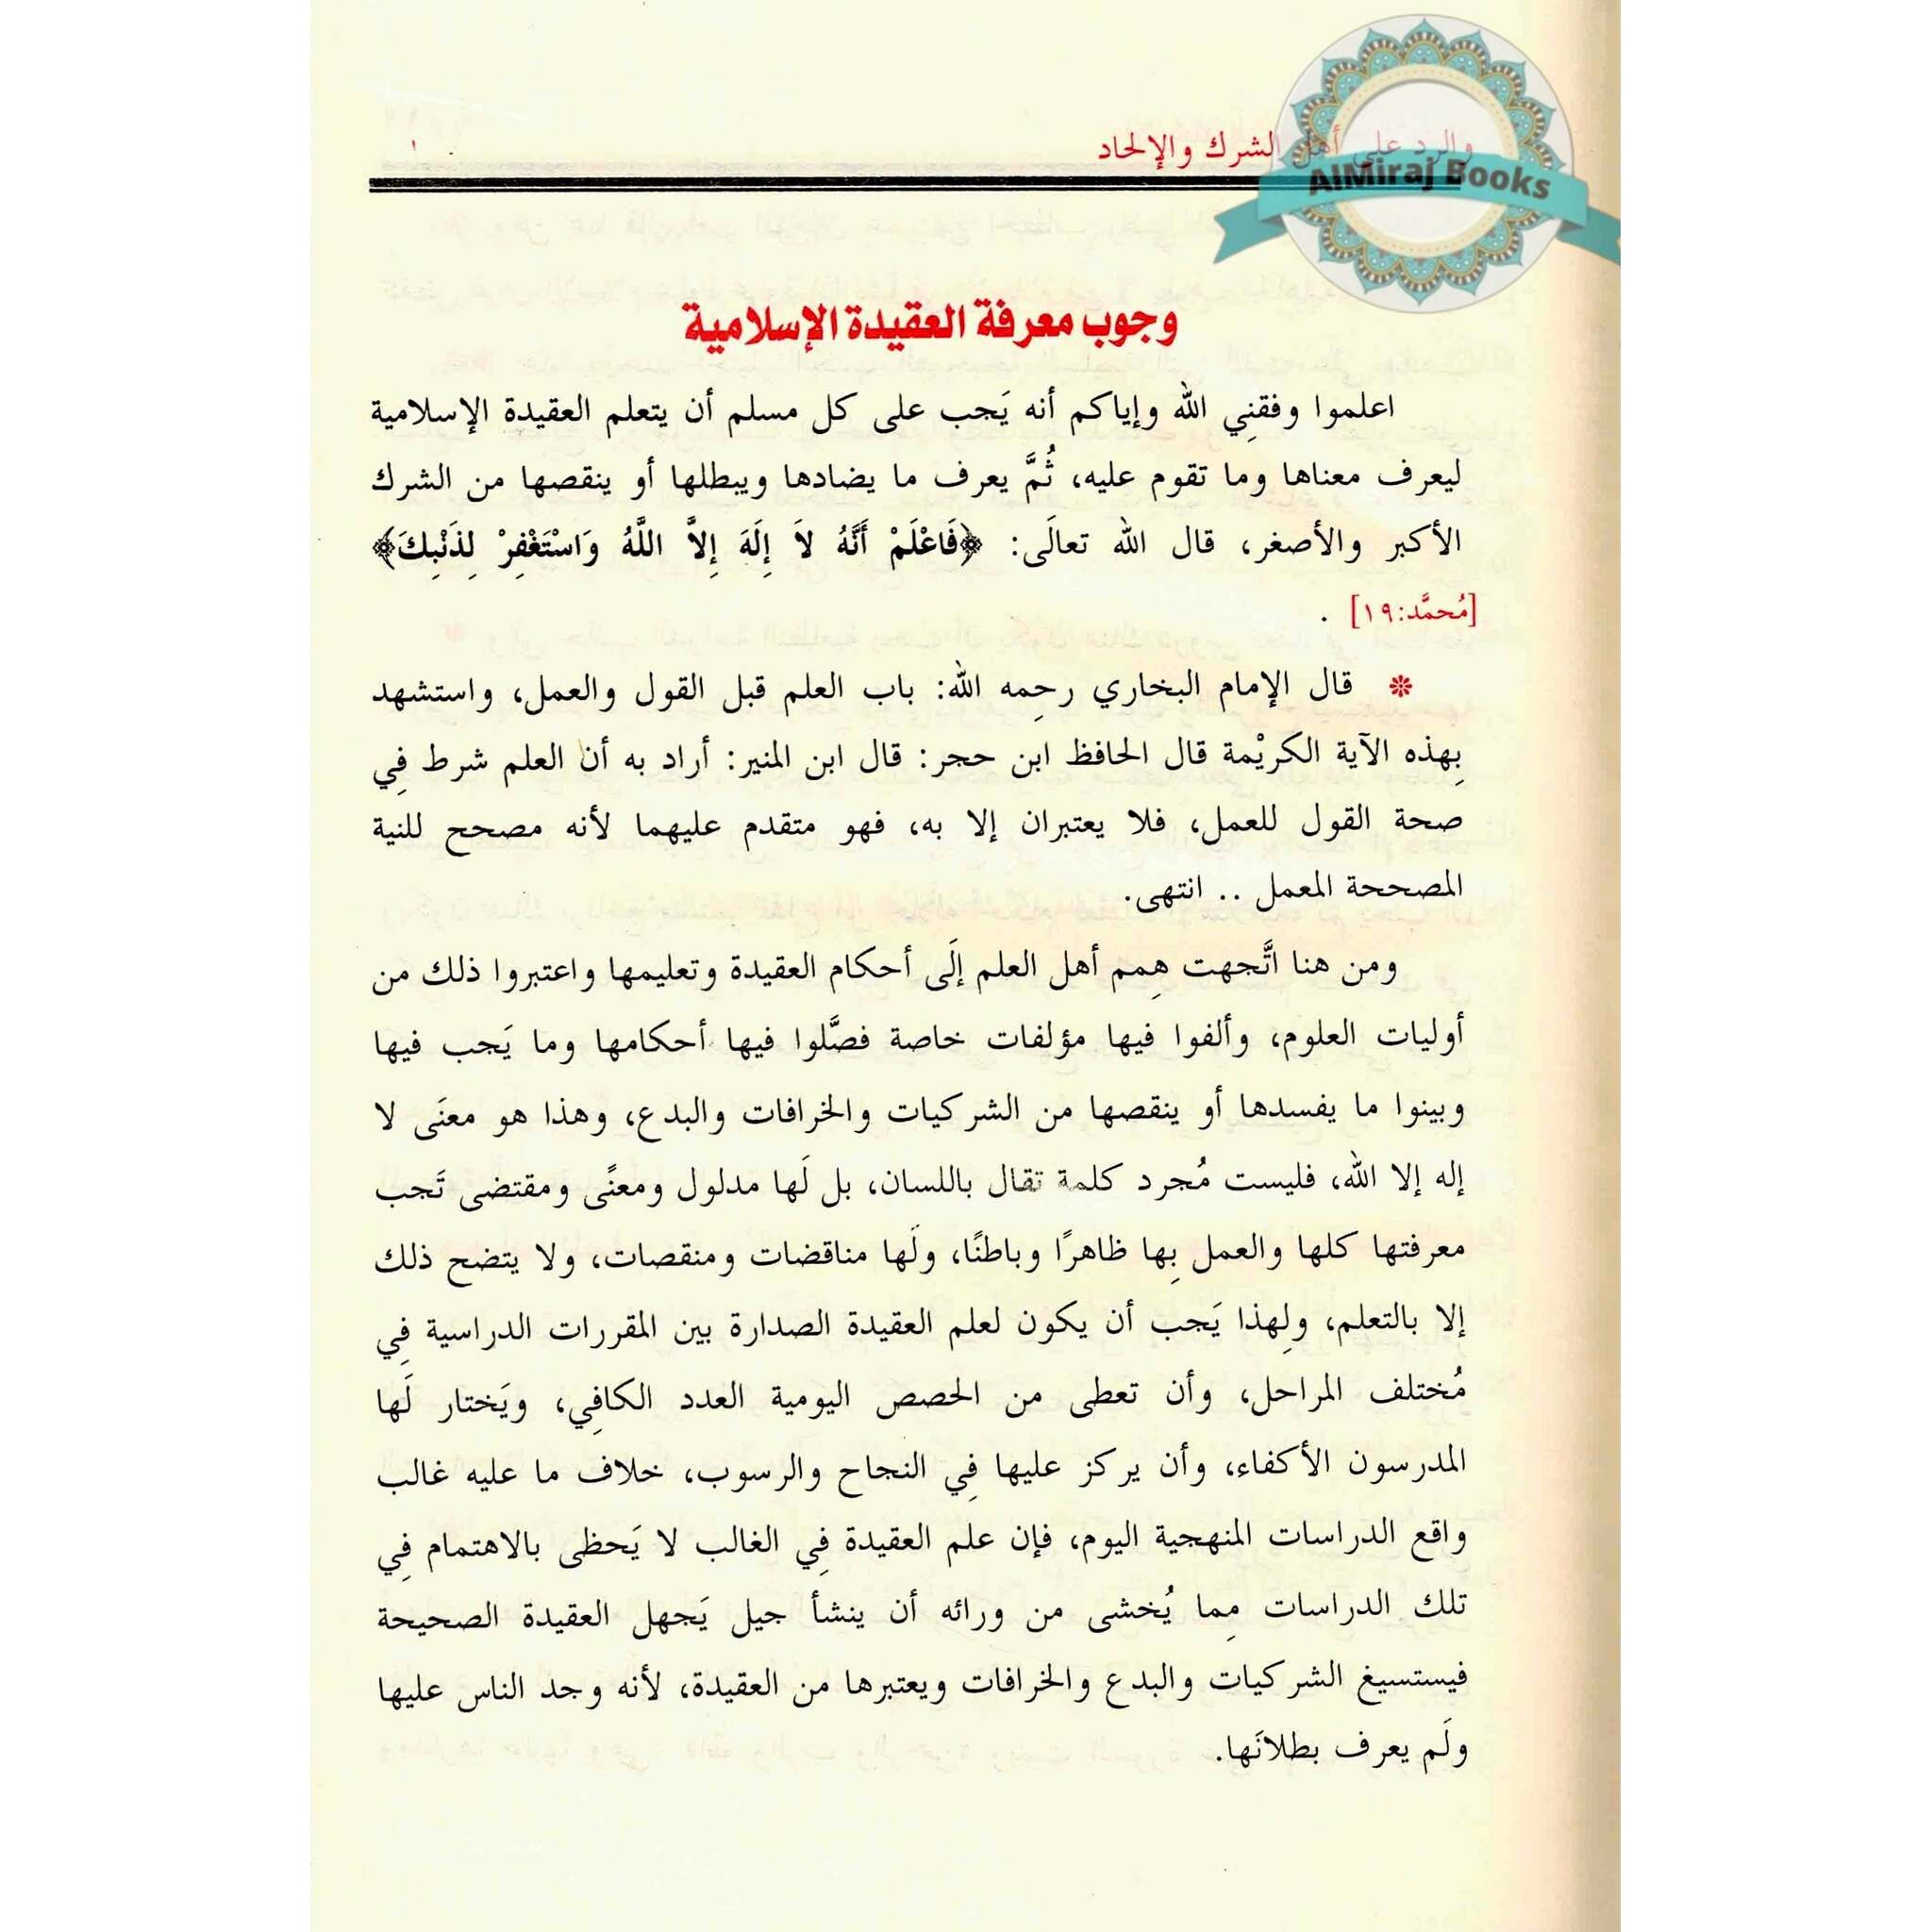 والرد على أهل الشرك والإلحاد
AlMiraj Books
وجوب معرفة العقيدة الإسلامية
اعلموا وفقنِي الله وإياكم أنه يَجب على كل مسلم أن يتعلم العقيدة الإسلامية
ليعرف معناها وما تقوم عليه، ثُمَّ يعرف ما يضادها ويبطلها أو ينقصها من الشرك
الأكبر والأصغر، قال الله تعالَى: ﴿فَاعْلَمْ أَنَّهُ لاَ إِلَهَ إِلاَّ اللَّهُ وَاسْتَغْفِرْ لِذَنْبِكَ﴾
[مُحمَّد:١٩] .
❊ قال الإمام البخاري رحِمه الله: باب العلم قبل القول والعمل، واستشهد
بِهذه الآية الكريْمة قال الحافظ ابن حجر: قال ابن المنير: أراد به أن العلم شرط فِي
صحة القول للعمل، فلا يعتبران إلا به، فهو متقدم عليهما لأنه مصحح للنية
المصححة المعمل .. انتهى.
ومن هنا اتَّجهت هِمم أهل العلم إلَى أحكام العقيدة وتعليمها واعتبروا ذلك من
أوليات العلوم، وألفوا فيها مؤلفات خاصة فصَّلوا فيها أحكامها وما يَجب فيها
وبينوا ما يفسدها أو ينقصها من الشركيات والخرافات والبدع، وهذا هو معنَى لا
إله إلا الله، فليست مُجرد كلمة تقال باللسان، بل لَها مدلول ومعنًى ومقتضى تَجب
معرفتها كلها والعمل بِها ظاهرًا وباطنًا، ولَها مناقضات ومنقصات، ولا يتضح ذلك
إلا بالتعلم، ولِهذا يَجب أن يكون لعلم العقيدة الصدارة بين المقررات الدراسية فِي
مُختلف المراحل، وأن تعطى من الحصص اليومية العدد الكافِي، ويَختار لَها
المدرسون الأكفاء، وأن يركز عليها فِي النجاح والرسوب، خلاف ما عليه غالب
واقع الدراسات المنهجية اليوم، فإن علم العقيدة فِي الغالب لا يَحظى بالاهتمام فِي
تلك الدراسات مِما يُخشى من ورائه أن ينشأ جيل يَجهل العقيدة الصحيحة
فيستسيغ الشركيات والبدع والخرافات ويعتبرها من العقيدة، لأنه وجد الناس عليها
ولَم يعرف بطلانَها.